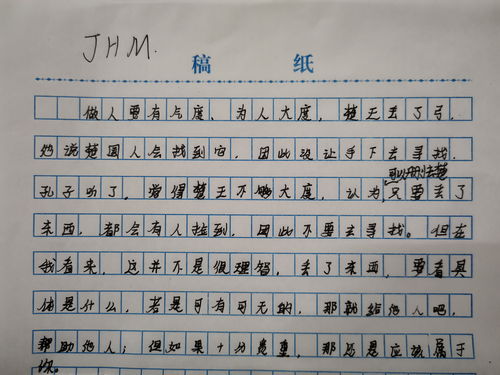 JHM.
稿 纸
做人要有气度、为人大度,楚王丢了弓,
他说楚国人会找到它,因此没让手下去寻找.
可以删去楚
孔子听了,觉得楚王不够大度,认为,只要丢了
东西,都会有人捡到,因此不要去寻找。但在
我看来,这并不是很理智,丢了东西,要看具
体是什么,若是可有可无的,那就给他人吧,
帮助他人;但如果十分贵重,那还是应该属于
你。